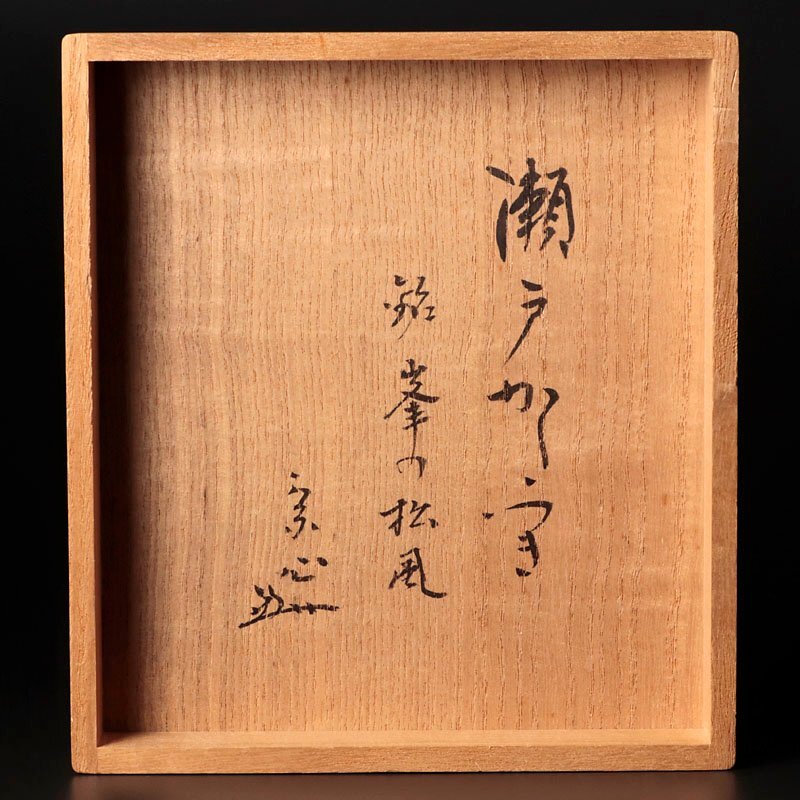 瀬戸かたつき
銘 峯の松風
宗心